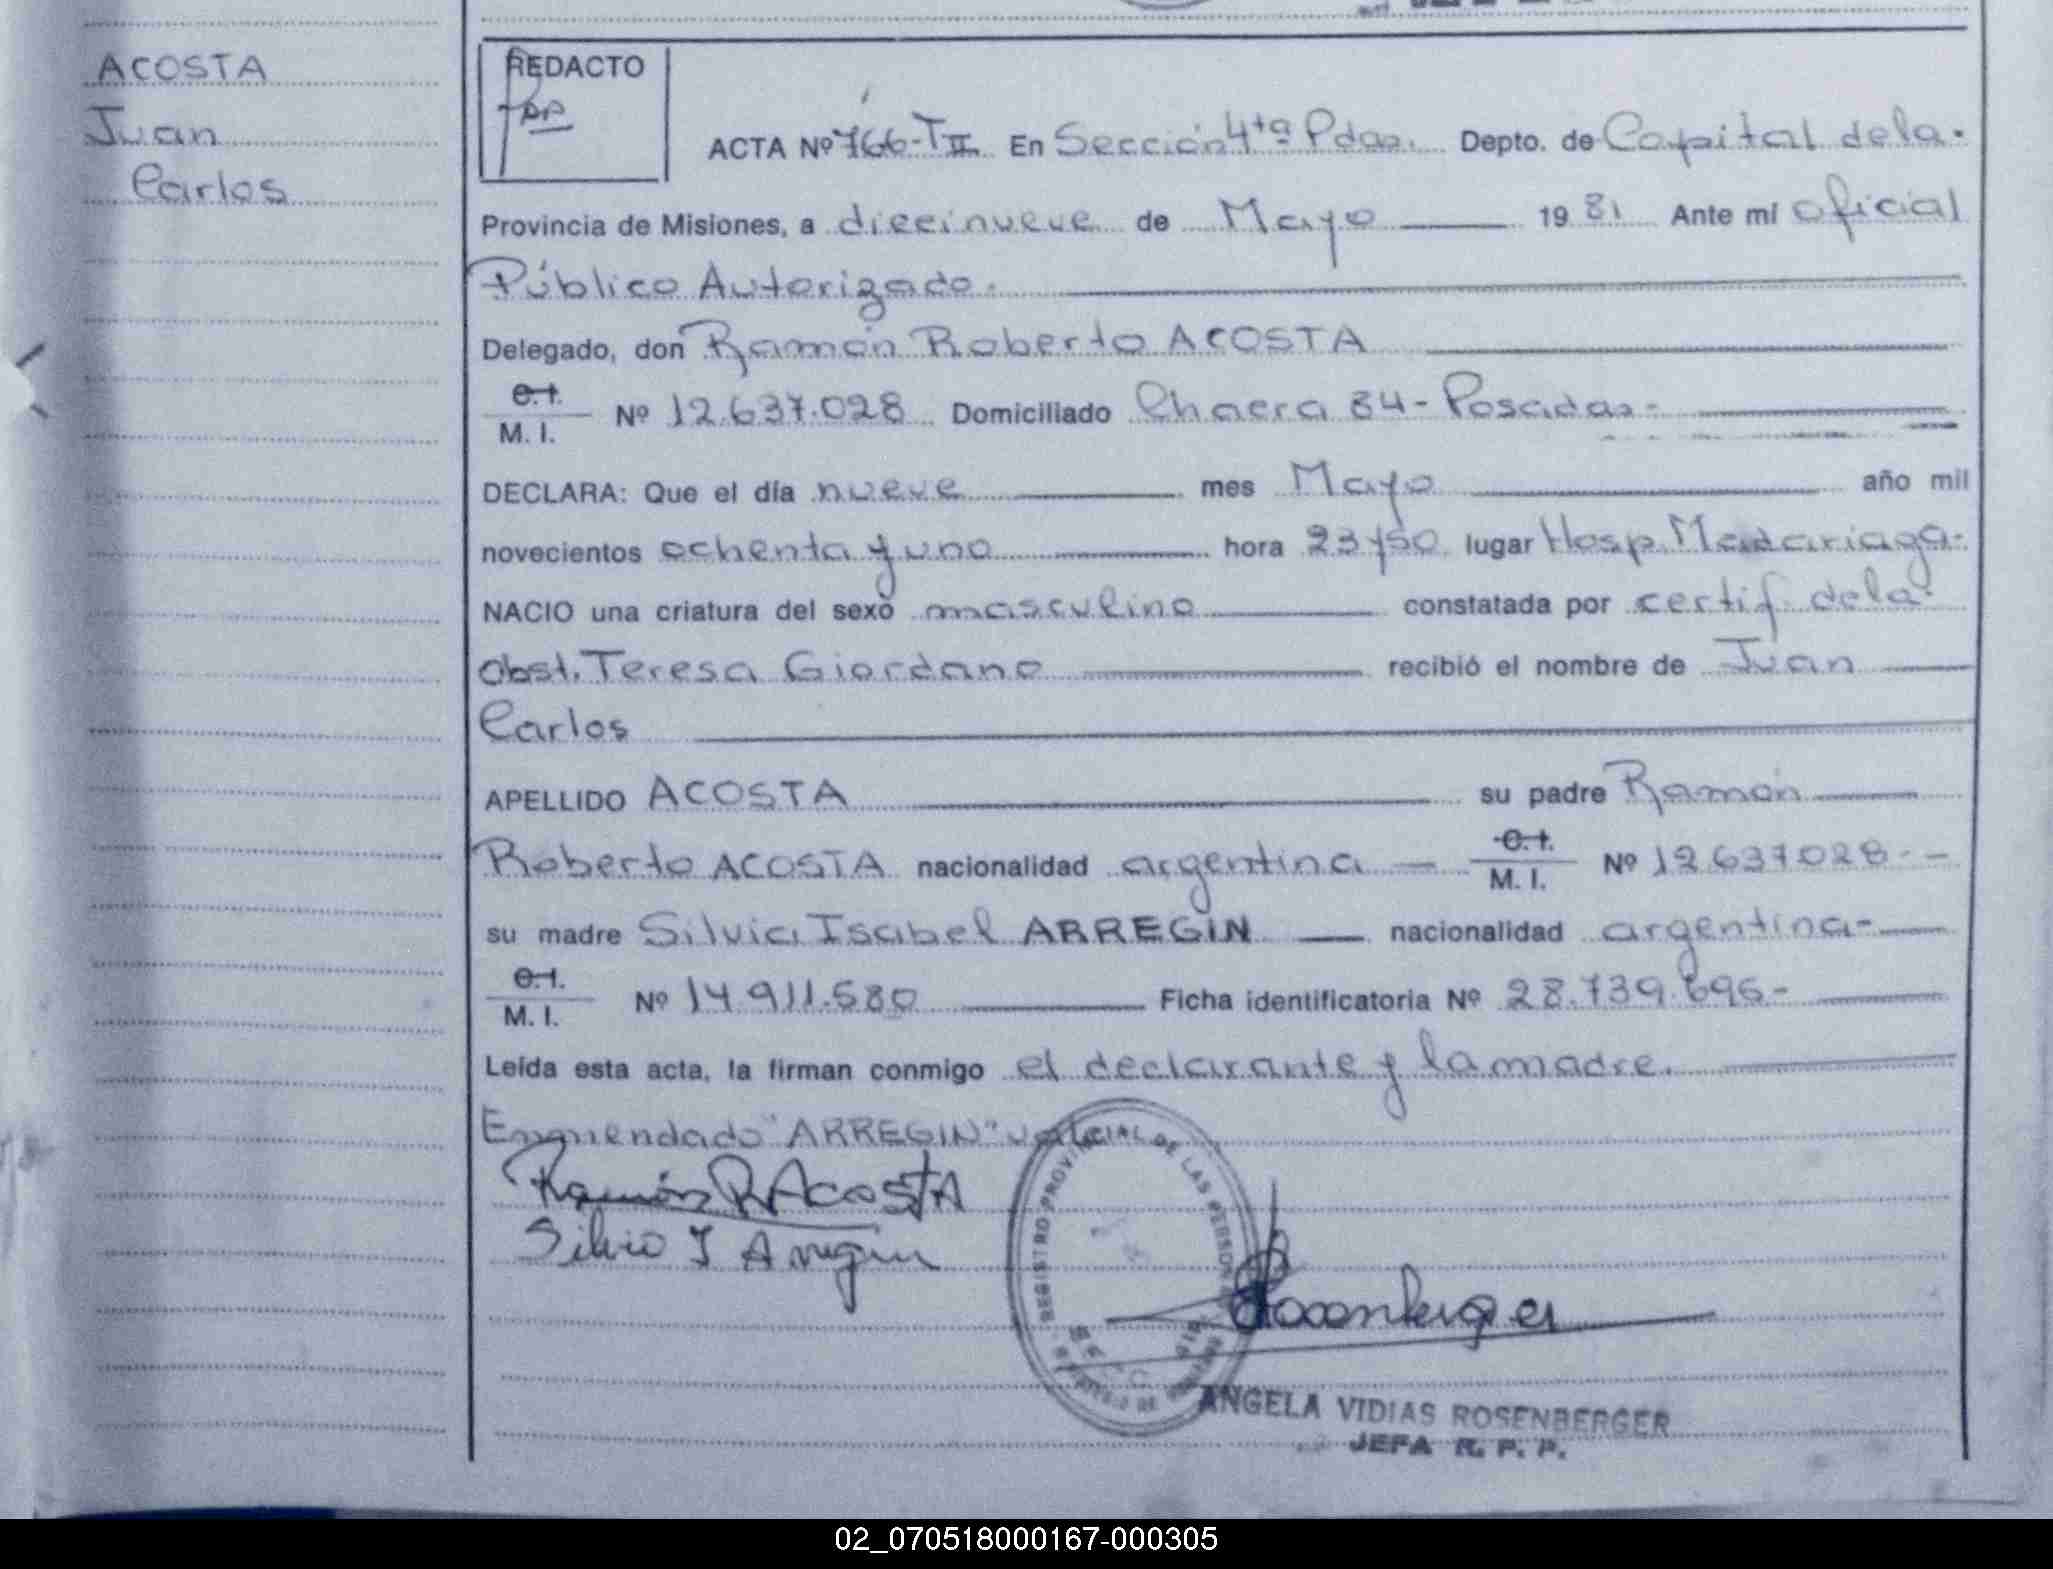 ACOSTA
Juan
Carlos
REDACTO
ACTA Nº 766-TII En Sección 4ta Pdas. Depto. de Capital de la
Provincia de Misiones, a diecinueve de Mayo 1981 Ante mí oficial
Público Autorizado.
Delegado, don Ramón Roberto ACOSTA
C.I.
M. I. Nº 12.637.028 Domiciliado Chacra 84 - Posadas -
DECLARA: Que el día nueve mes Mayo año mil
novecientos ochenta y uno hora 23y50 lugar Hosp. Madariaga.
NACIO una criatura del sexo masculino constatada por certif. de la
obst. Teresa Giordano recibió el nombre de Juan
Carlos
APELLIDO ACOSTA su padre Ramón
Roberto ACOSTA nacionalidad argentina C.I.
M. I. Nº 12.637.028 - -
su madre Silvia Isabel ARREGIN nacionalidad argentina -
C.I.
M. I. Nº 14.911.580 Ficha identificatoria Nº 28.739.695 -
Leída esta acta, la firman conmigo el declarante y la madre.
Enmendado "ARREGIN" vale
Ramón R ACOSTA
Silvia I Arregin
REGISTRO PROVINCIAL DE LAS PERSONAS
Rosenberger
ANGELA VIDIAS ROSENBERGER
JEFA R. P. P.
02_070518000167-000305